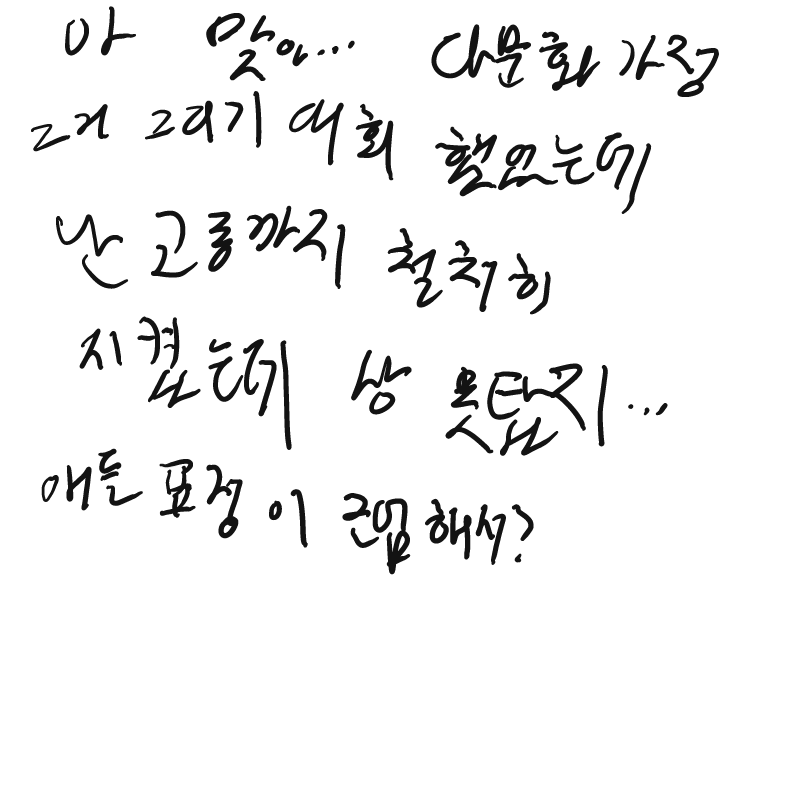 아 맞아... 다문화 가정
그거 그리기 대회 했었는데
난 고롱까지 철저히
지켰는데 상 못탔지...
애들 표정이 근엄해서?